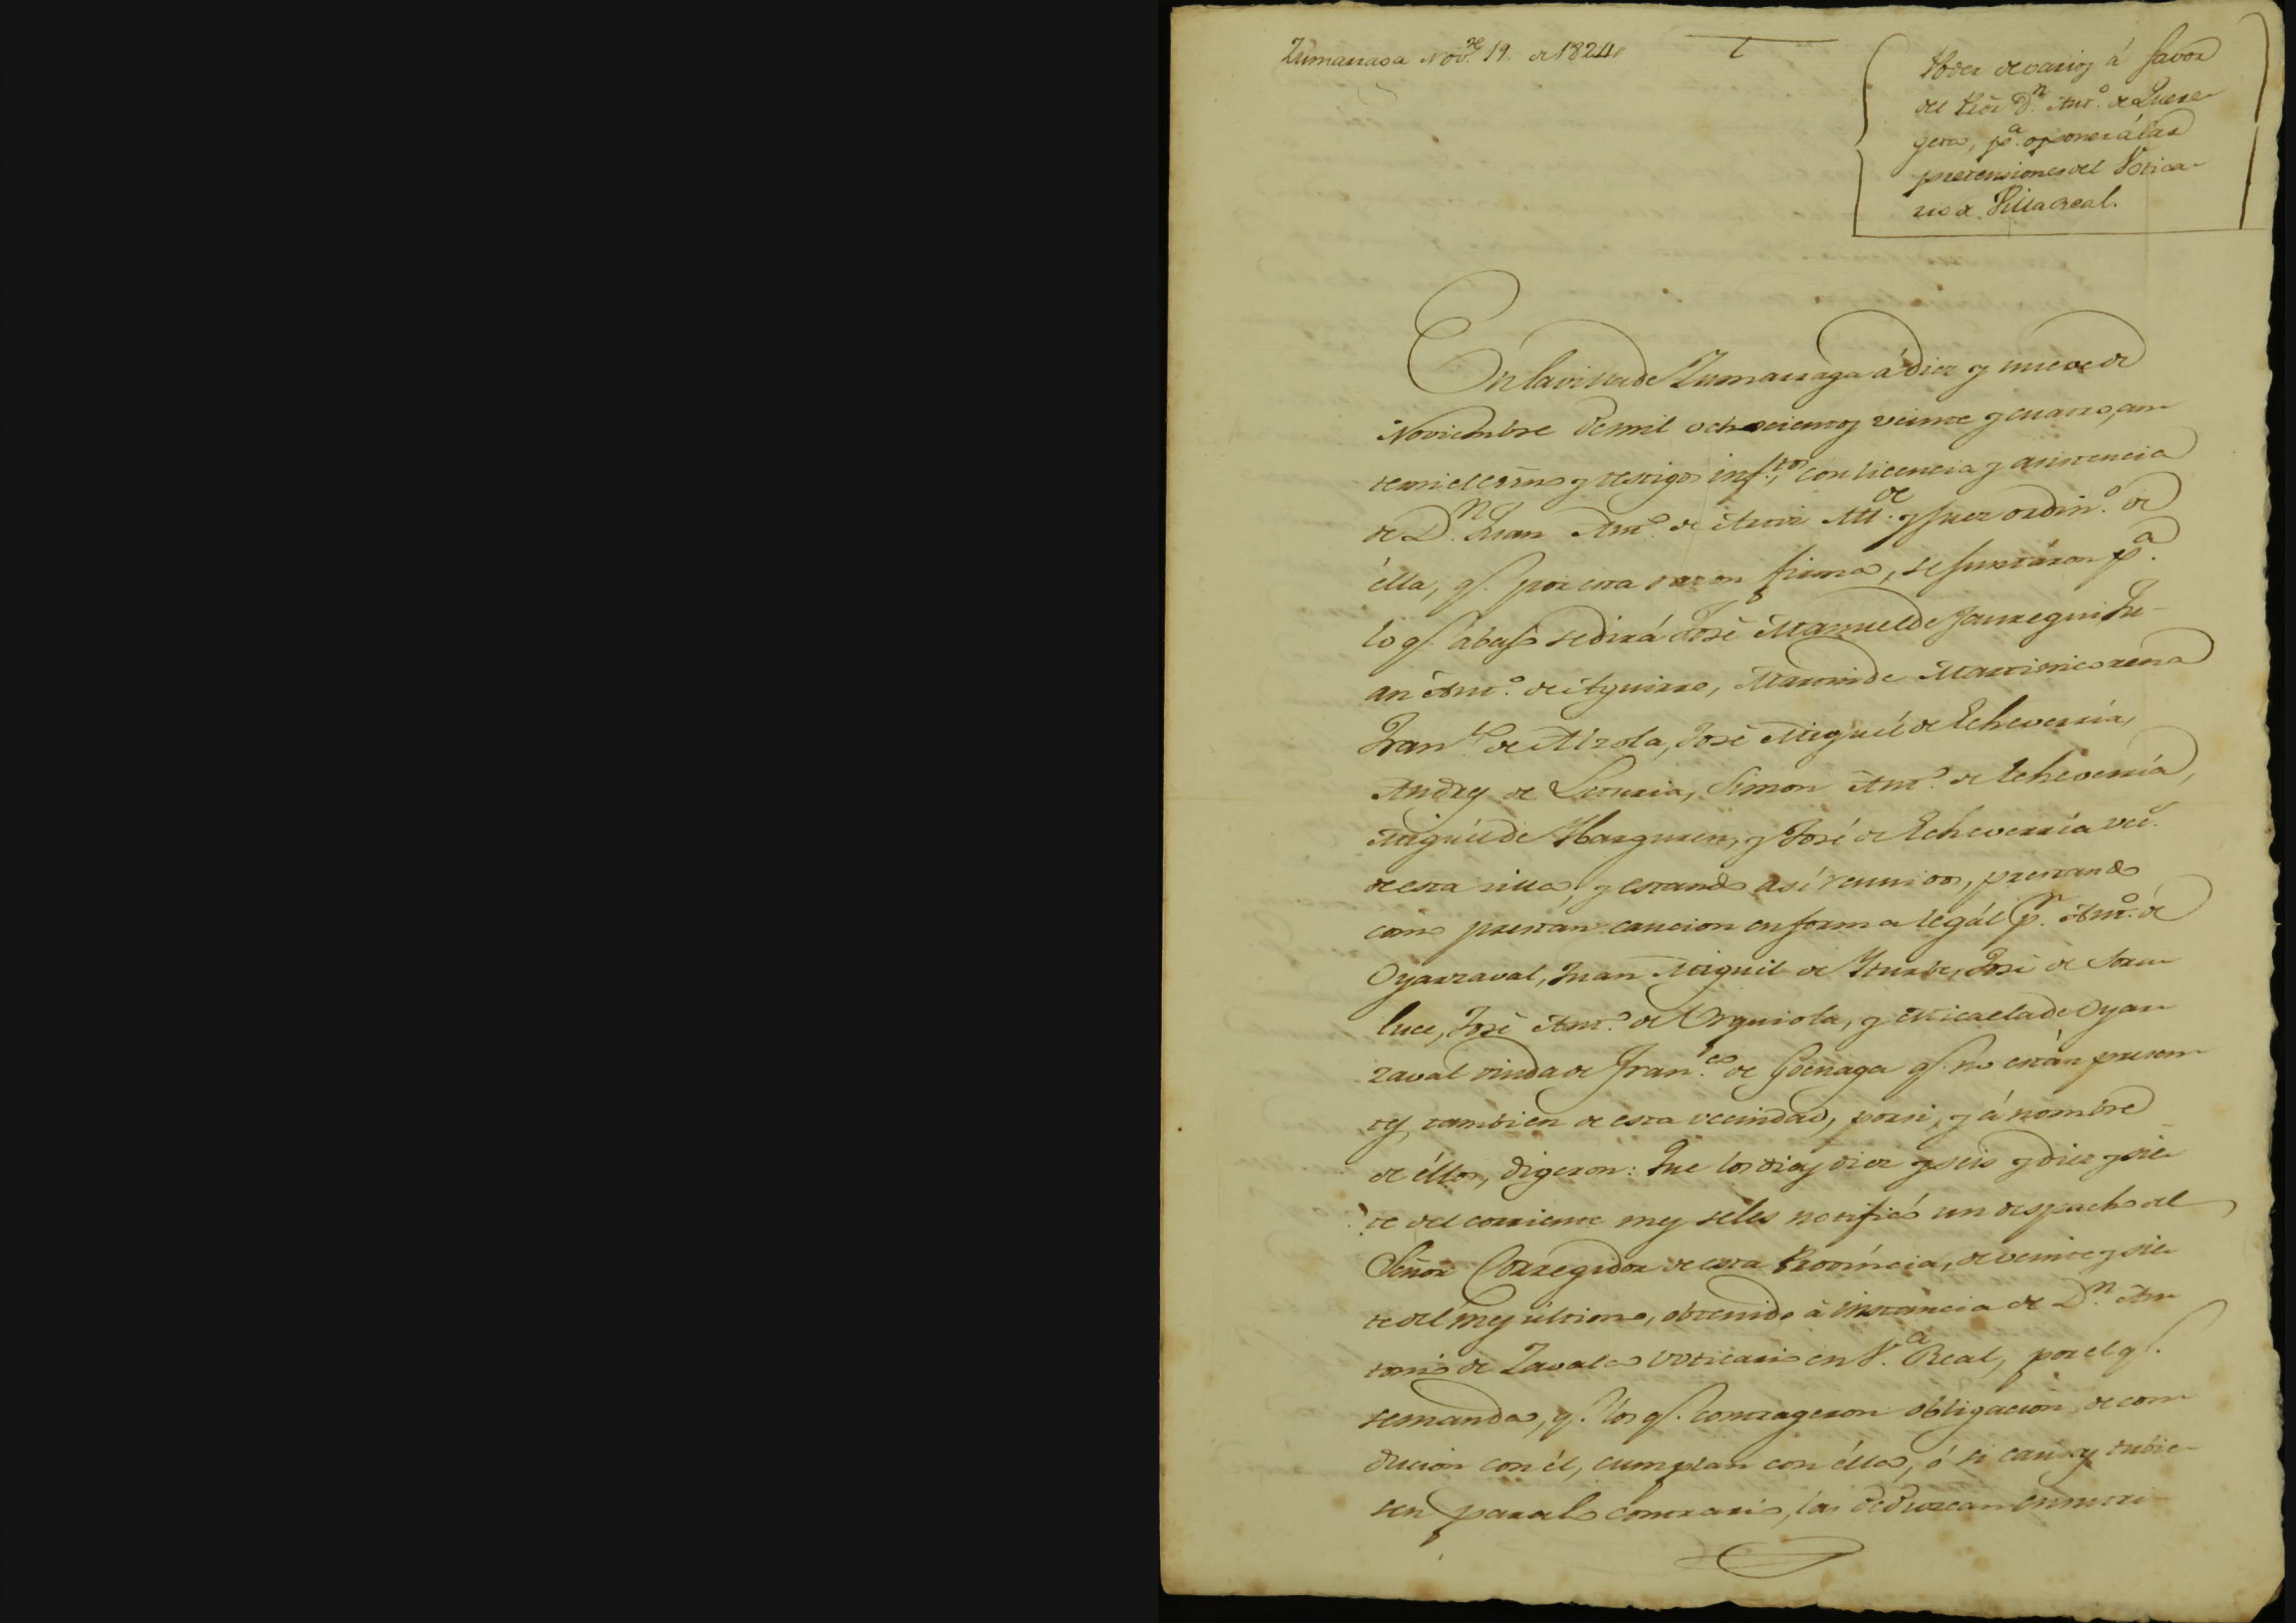 Zumarraga Nov.re 19. de 1824
Poder de varios á favor
del Pror D.n Ant.o de Quere-
geta, p.a oponer á las
pretensiones del Botica-
rio de Villa Real.
En la villa de Zumarraga á diez y nueve de
Noviembre de mil ochocientos veinte y cuatro, an-
te mi el esno y testigos inf.tos, con licencia y asistencia
de D.n Juan Ant.o de Alc.de y Juez ordin.o de
élla, q.e por esta razon firma, se juntáron p.a
lo q.e abajo se dirá José Manuel de Jauregui Ju-
an Ant.o de Aguirre, Martin de Martinicorena
Fran.co de Alzola, José Miguél de Echeverría,
Andres de Leturia, Simon Ant.o de Echeverría,
Miguél de Ybarguren, y José de Echeverría vec.s
de esta villa, y estando así reunidos, prestando
como prestan caucion en forma legál p.r Ant.o de
Oyarzaval, Juan Miguél de Yturbe, José de Sora-
luce, José Ant.o de Urquiola, y Micaela de Oyar-
zaval viuda de Fran.co de Goenaga q.e no están presen-
tes, tambien de esta vecindad, por si, y á nombre
de éllos, digeron: Que los dias diez y seis y diez y sie-
te del corriente mes se les notificó un despacho del
Señor Corregidor de esta Provincia, de veinte y sie-
te del mes último, obtenido á instancia de D.n An-
tonio de Zavala Boticario en V.a Real, por el q.e
se manda, q.e los q.e contrageron obligacion de con-
ducion con él, cumplan con élla, ó si causas tubie-
sen para lo contrario, las deduzcan en